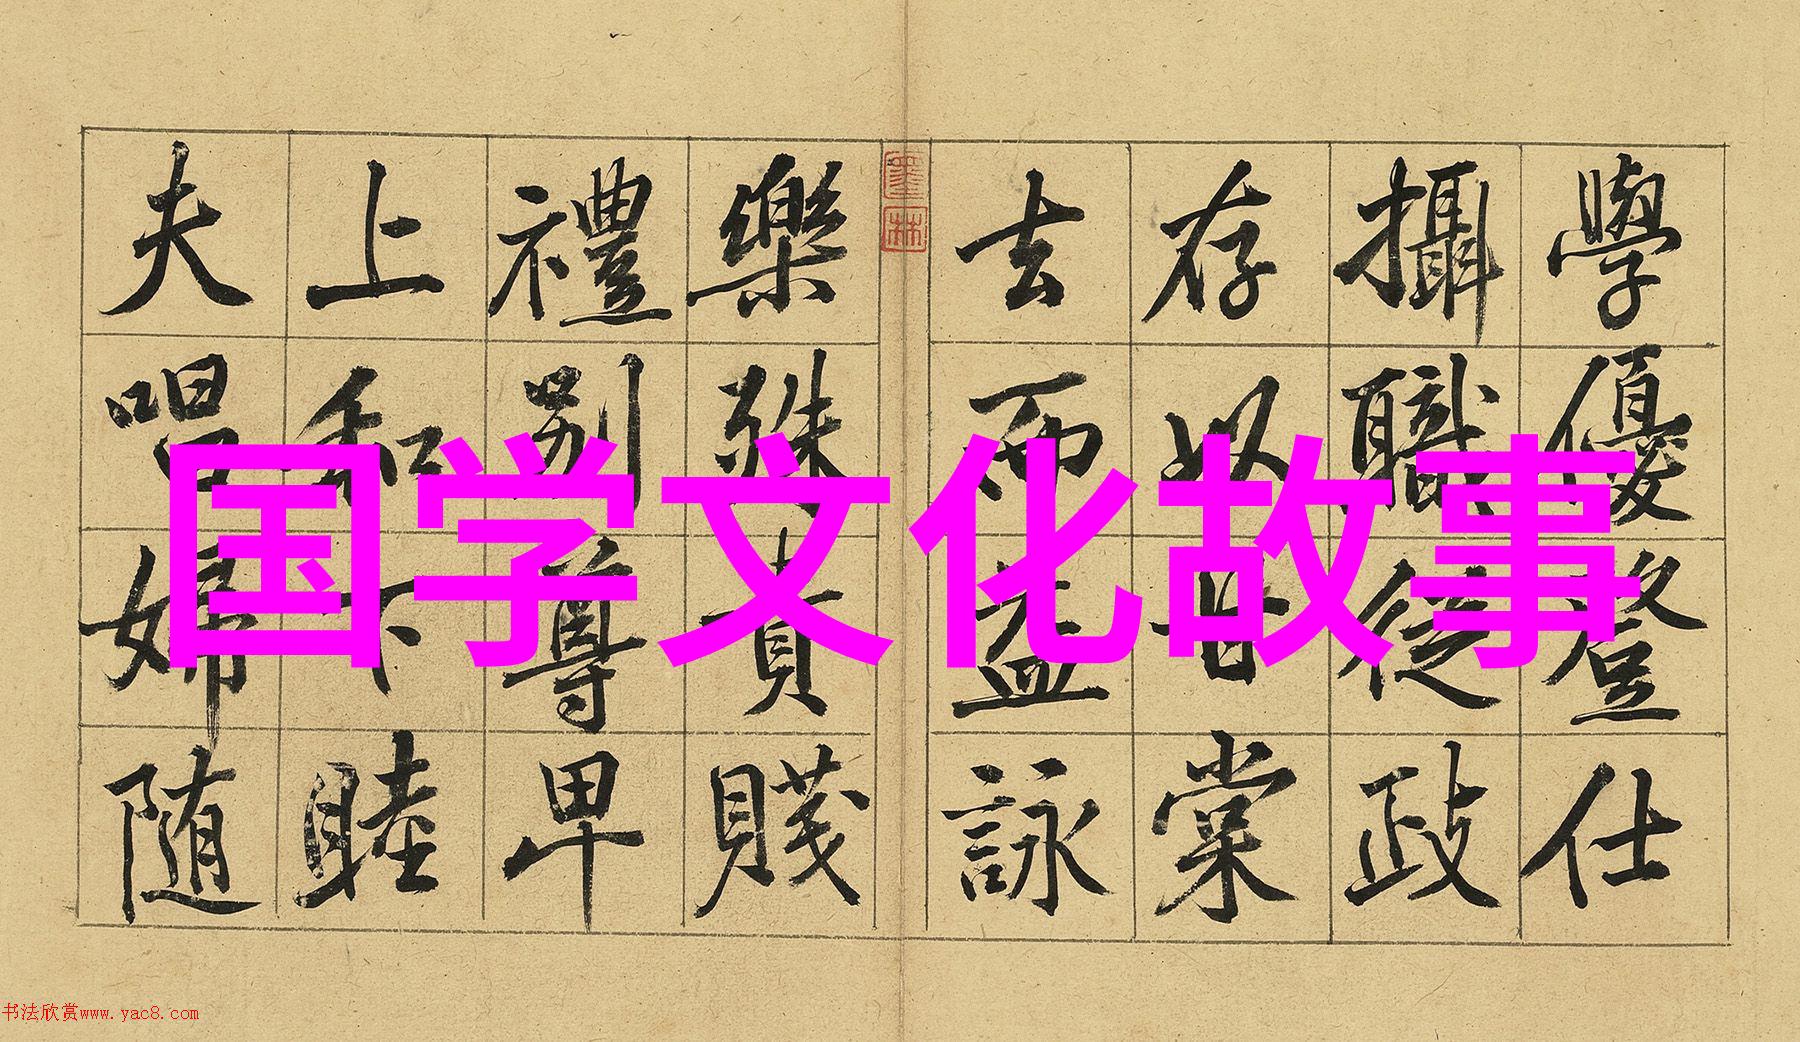 國学文化故事
學優登仕
攝職從政
存以甘棠
去而益詠
墨林
樂殊貴賤
禮別尊卑
上和下睦
夫唱婦随
书法欣赏www.yac8.com